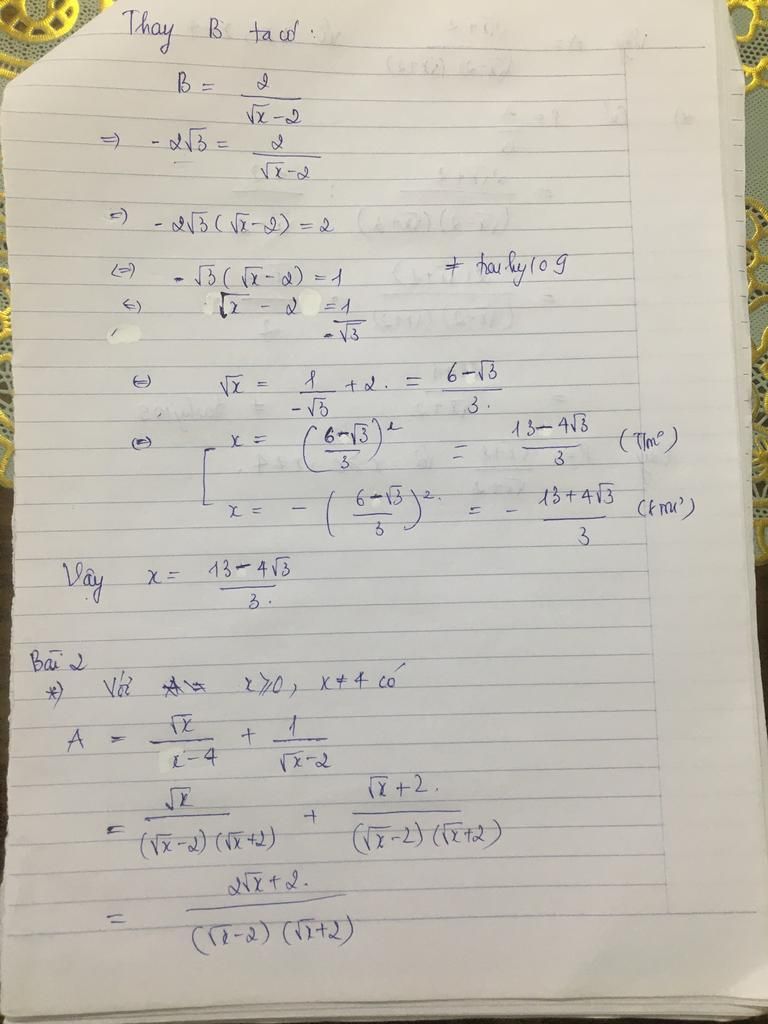 Thay B ta có:
B = 2/(√x - 2)
=> - 2√3 = 2/(√x - 2)
=> - 2√3 (√x - 2) = 2
<=> - √3 (√x - 2) = 1 # hoahy109
<=> √x - 2 = 1/(-√3)
<=> √x = 1/(-√3) + 2. = (6 - √3)/3.
<=> [ x = ((6 - √3)/3)² = (13 - 4√3)/3 (TM)
x = - ((6 - √3)/3)². = - (13 + 4√3)/3 (KTM)
Vậy x = (13 - 4√3)/3.
Bài 2
*) Với x ≥ 0, x ≠ 4 có
A = √x/(x - 4) + 1/(√x - 2)
= √x/((√x - 2)(√x + 2)) + (√x + 2.)/((√x - 2)(√x + 2))
= (2√x + 2.)/((√x - 2)(√x + 2))